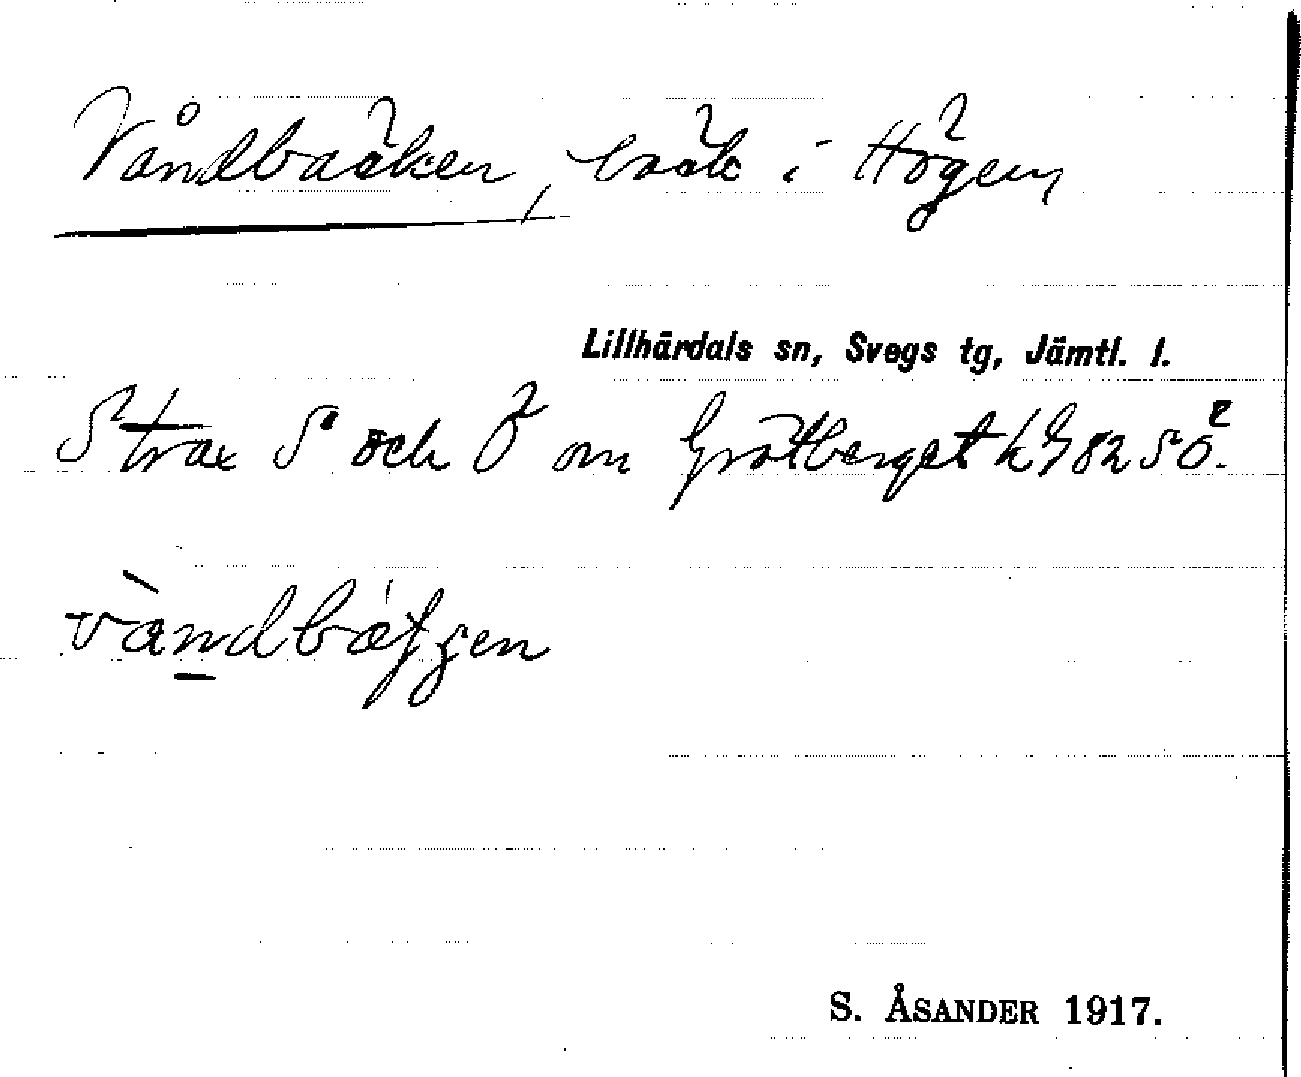 Våndbäcken, bäck i Högen,
Lillhärdals sn, Svegs tg, Jämtl. l.
Strax S och Ö om Grötberget kg 82 SÖ.
vàndbǽʃʃen
S. ÅSANDER 1917.